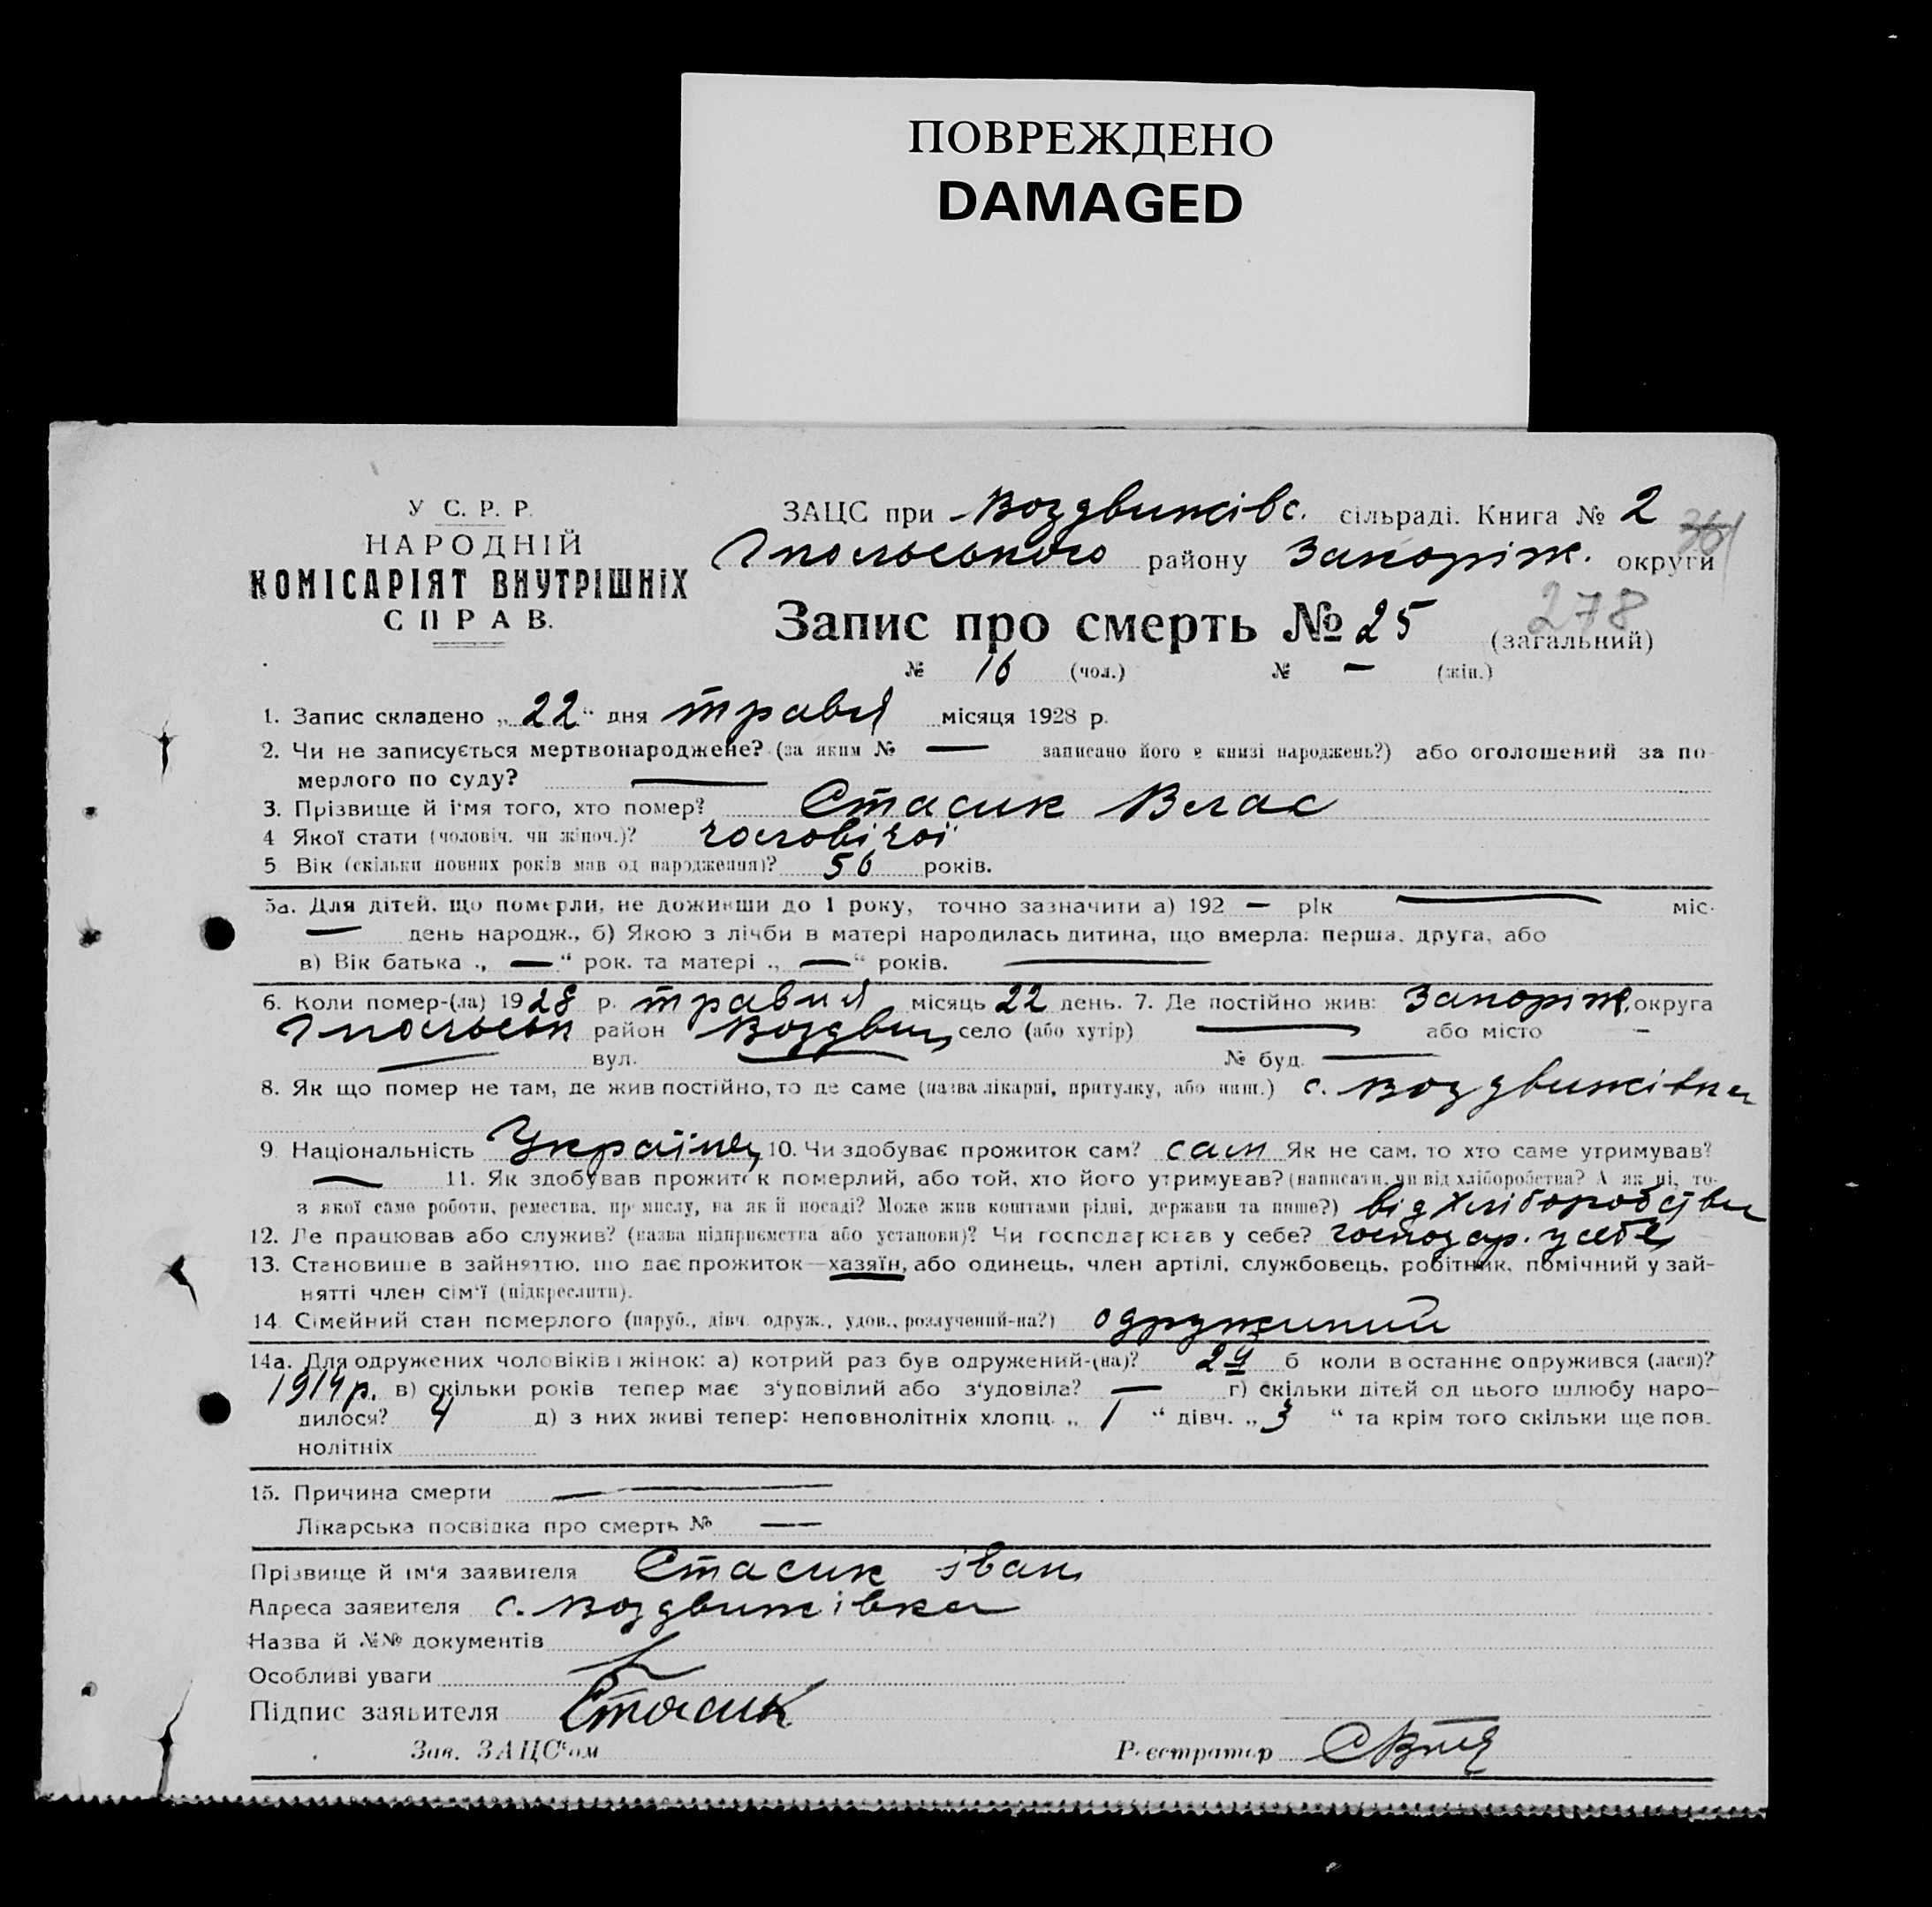 ПОВРЕЖДЕНО
DAMAGED
У С. Р. Р.
НАРОДНІЙ
КОМІСАРІЯТ ВНУТРІШНІХ
СПРАВ.
ЗАЦС при Воздвижівс. сільраді. Книга № 2
району Запоріж. округи
278
Запис про смерть № 25 (загальний)
№ 16 (чол.) № — (жін.)
1. Запис складено „ 22 “ дня травня місяця 1928 р.
2. Чи не записується мертвонароджене? (за яким № — записано його в книзі народжень?) або оголошений за по-
мерлого по суду? —
3. Прізвище й і'мя того, хто помер? Стасик Влас
4 Якої стати (чоловіч. чи жіноч.)? чоловічої
5 Вік (скільки повних років мав од народження)? 56 років.
5а. Для дітей, що померли, не доживши до 1 року, точно зазначити а) 192 — рік — міс.
— день народж., б) Якою з лічби в матері народилась дитина, що вмерла: перша, друга, або
в) Вік батька „ — “ рок. та матері „ — “ років. —
6. Коли помер-(ла) 1928 р. травня місяць 22 день. 7. Де постійно жив: Запоріж. округа
район Воздвиж. село (або хутір) — або місто —
— вул. — № буд. —
8. Як що помер не там, де жив постійно, то де саме (назва лікарні, притулку, або инш.) с. Воздвижівка
9. Національність Українец 10. Чи здобуває прожиток сам? сам Як не сам, то хто саме утримував?
— 11. Як здобував прожиток померлий, або той, хто його утримував? (написати, чи від хліборобства? А як ні, то-
з якої саме роботи, ремества, промислу, на якій посаді? Може жив коштами рідні, держави та инше?) від хліборобства
12. Де працював або служив? (назва підприємства або установи)? Чи господарював у себе? господар. у себе
13. Становище в зайняттю, що дає прожиток—хазяїн, або одинець, член артілі, службовець, робітник, помічний у зай-
нятті член сім'ї (підкреслити).
14. Сімейний стан померлого (паруб., дівч. одруж., удов., розлучений-на?) одружиний
14а. Для одружених чоловіків і жінок: а) котрий раз був одружений-(на)? 2й б коли в останнє одружився (лася)?
1914 р. в) скільки років тепер має з'уповілий або з'удовіла? — г) скільки дітей од цього шлюбу наро-
дилося? 4 д) з них живі тепер: неповнолітніх хлопц. „ 1 “ дівч. „ 3 “ та крім того скільки ще пов.
нолітніх
15. Причина смерти —
Лікарська посвідка про смерть № —
Прізвище й ім'я заявителя Стасик іван
Адреса заявителя с. Воздвижівка
Назва й №№ документів
Особливі уваги
Підпис заявителя Стасик
Зав. ЗАЦС'ом Реєстратор